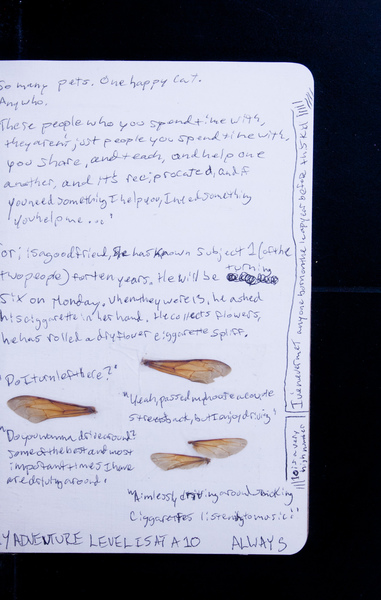 So many pets. One happy Cat.
Anywho.
These people who you spend time with,
they aren't just people you spend time with,
you share, and teach, and help one
another, and it's reciprocated, and if
you need something I help you, I need something
you help me...'
ori is a good friend, He has known Subject 1 (of the
two people) for ten years. He will be turning
six on Monday. When they were 15, he ashed
his ciggarette in her hand. He collects flowers,
he has rolled a dry flower ciggarette spliff.
"Do I turn left here?"
"Yeah, passed my house a minute
street back, but I enjoy driving'
"Do you wanna drive around?
some of the best and most
important times I have
are driving around.
"Aimlessly driving around smoking
ciggarettes listening to music"
Y ADVENTURE LEVEL IS AT A 10 ALWAYS
I've never met anyone born on the
before this kid
10 is a very
high number